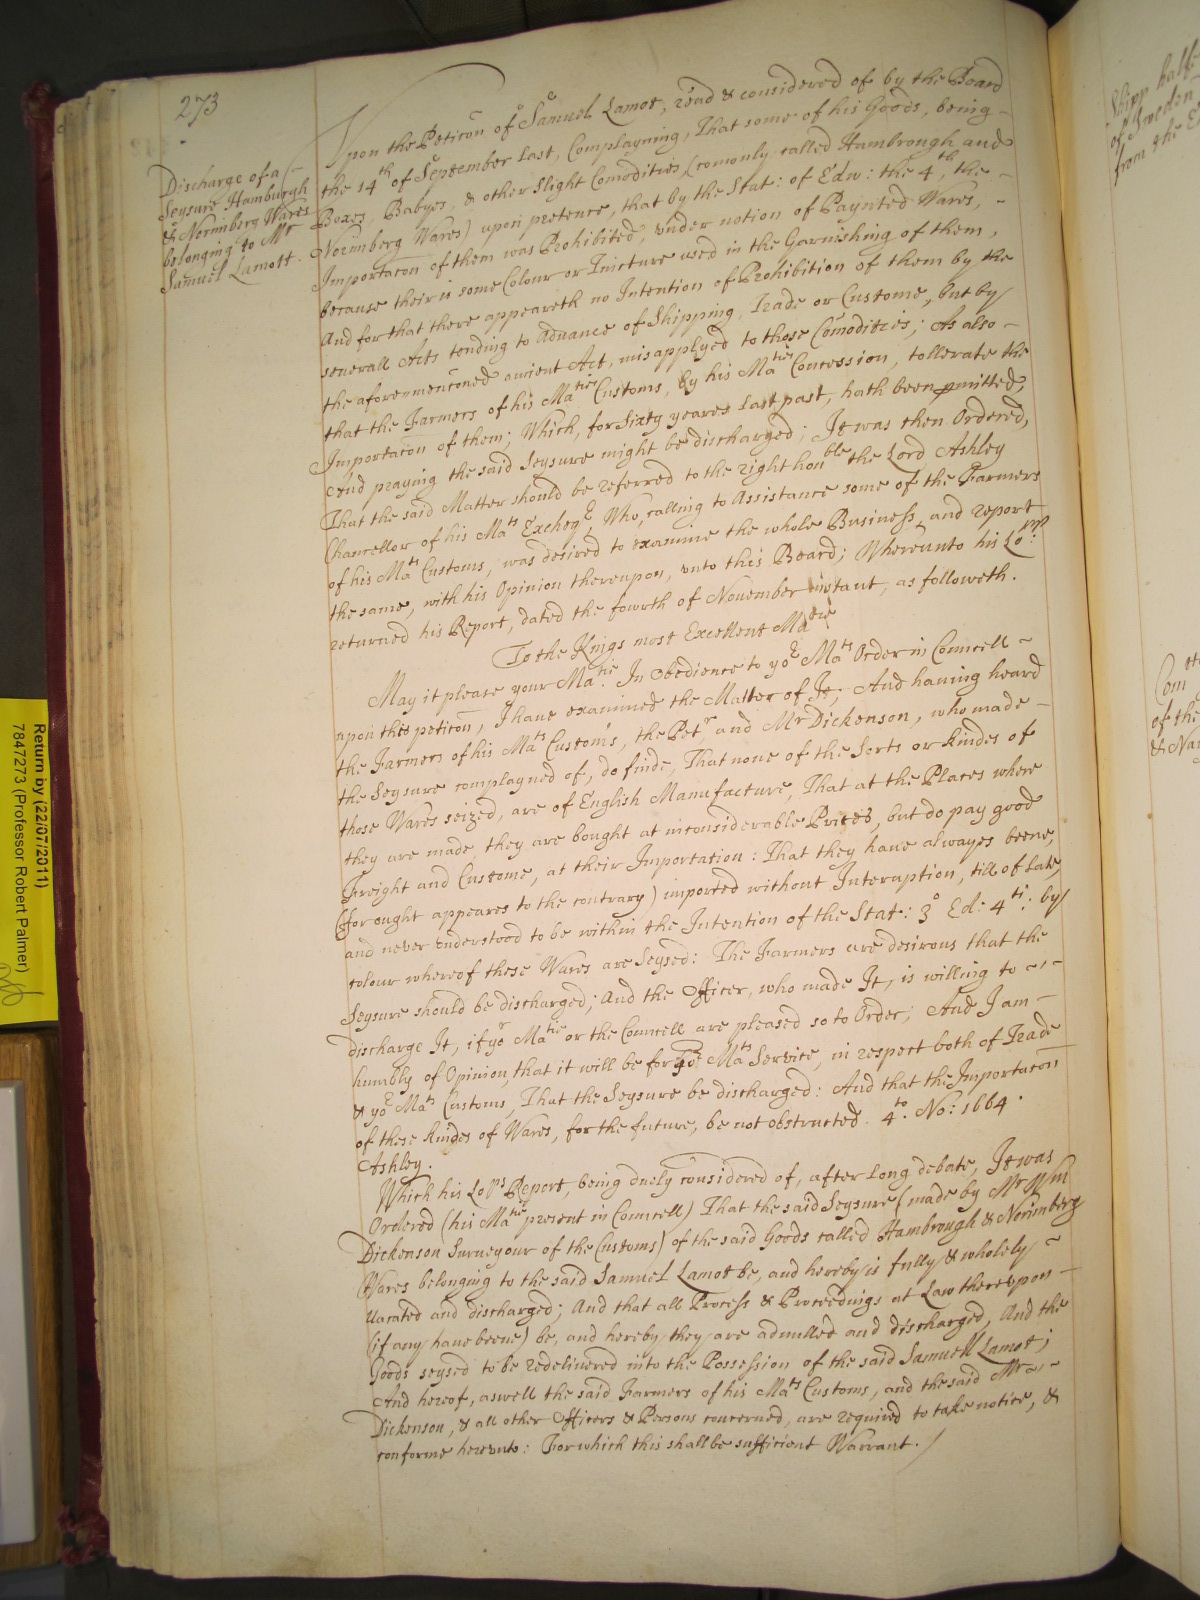 273
Discharge of a
Seysure Hamburgh
& Norimberg Wares
belonging to Mr
Samuel Lamott.
Upon the Peticon of Samuel Lamot, read & considered of by the Board
the 14th of September last, Complayning, That some of his Goods, being
Boxes, Babyes, & other slight Comodities, (comonly called Hambrough and
Norimberg Wares) upon pretence, that by the Stat: of Edw: the 4th, the
Importacon of them was Prohibited, under notion of Paynted Wares,
because their is some Colour or Tincture used in the Garnishing of them,
And for that there appeareth no Intention of Prohibition of them by the
severall Acts tending to Advance of Shipping, Trade or Custome, but by
the aforemenconed ancient Act, misapplyed to those Comodities; As also
that the Farmers of his Maties Customs, by his Maties Concession, tollerate the
Importacon of them; Which, for Sixty yeares last past, hath been pmitted,
And praying the said Seysure might be discharged; It was then Ordered,
That the said Matter should be referred to the right honble the Lord Ashley
Chancellor of his Mats Excheqr, Who, calling to Assistance some of the Farmers
of his Mats Customs, was desired to examine the whole Business, and report
the same, with his Opinion thereupon, unto this Board; Whereunto his Lopp:
returned his Report, dated the fourth of November instant, as followeth.
To the Kings most Excellent Matie
May it please your Matie. In Obedience to yor Mats Order in Councell
upon this peticon, I have examined the Matter of It; And having heard
the Farmers of his Mats Customs, the Petr, and Mr Dickenson, who made
the Seysure complayned of, do finde, That none of the Sorts or kindes of
those Wares seized, are of English Manufacture, That at the Places where
they are made they are bought at inconsiderable Prices, but do pay good
Freight and Custome, at their Importation: That they have alwayes beene,
(for ought appeares to the contrary) imported without Interuption, till of late,
and never understood to be within the Intention of the Stat: 3o Ed: 4ti: by
colour whereof these Wares are Seysed: The Farmers are desirous that the
Seysure should be discharged; And the Officer, who made It, is willing to
discharge It, if yor Matie or the Councell are pleased so to Order; And I am
humbly of Opinion, that it will be for yor Mats Service, in respect both of Trade
& yor Mats Customs, That the Seysure be discharged: And that the Importacon
of these kindes of Wares, for the future, be not obstructed. 4to. No: 1664.
Ashley.
Which his Lops Report, being duely considered of, after long debate, It was
Ordered (his Matie present in Councell) That the said Seysure (made by Mr Wm
Dickenson Surveyour of the Customs) of the said Goods called Hambrough & Norimberg
Wares belonging to the said Samuel Lamot be, and hereby is fully & wholely
Vacated and discharged; And that all Process & Proceedings at Law thereupon
(if any have beene) be, and hereby they are adnulled and discharged, And the
Goods seysed to be redelivered into the Possession of the said Samuell Lamot;
And hereof, aswell the said Farmers of his Mats Customs, and the said Mr
Dickenson, & all other Officers & Persons concerned, are required to take notice, &
conforme hereunto: For which this shall be sufficient Warrant./
Shipp
of Sweden
from the
Com
of the
Return by (22/07/2011)
7847273 (Professor Robert Palmer)